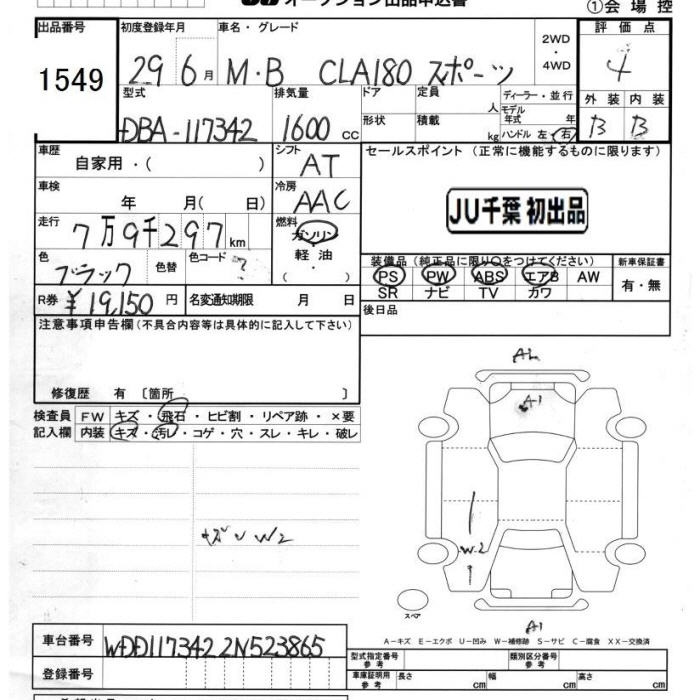 オークション出品申込書
①会場控
出品番号 初度登録年月 車名・グレード 2WD・4WD 評価点
1549 29 6月 M・B CLA180 スポーツ 4
型式 排気量 ドア 定員 人 ディーラー・並行 外装 内装
モデル年式 年
DBA-117342 1600cc 形状 積載 kg ハンドル 左・右 B B
車歴 自家用・( ) シフト AT セールスポイント (正常に機能するものに限ります)
車検 年 月( 日) 冷房 AAC
JU千葉 初出品
走行 7万9千297km 燃料 ガソリン・軽油・( )
色 ブラック 色替 色コード ?
装備品(純正品に限り○をつけてください) 新車保証書
PS PW ABS エアB AW 有・無
SR ナビ TV カワ
R券 ¥19,150円 名変通知期限 月 日 後日品
注意事項申告欄(不具合内容等は具体的に記入して下さい)
修復歴 有〔箇所 〕
検査員 FW キズ・飛石・ヒビ割・リペア跡・×要
記入欄 内装 キズ・汚レ・コゲ・穴・スレ・キレ・破レ
A1
W2
W2
スペア
A1
A-キズ E-エクボ U-凹み W-補修跡 S-サビ C-腐食 XX-交換済
車台番号 WDD1173422N523865
型式指定番号 参考 類別区分番号 参考
登録番号 車庫証明用 参考 長さ cm 幅 cm 高さ cm